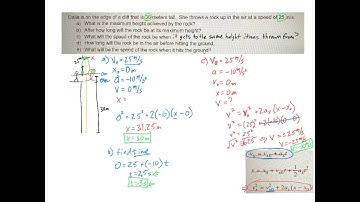 Calia is on the edge of a cliff that is 30 meters tall. She throws a rock up in the air at a speed of 25 m/s.
a) What is the maximum height achieved by the rock?
b) After how long will the rock be at its maximum height?
c) What will the speed of the rock be when it gets to the same height it was thrown from?
d) How long will the rock be in the air before hitting the ground.
e) What will be the speed of the rock when it hits the ground?
a) V₀ = 25 m/s
x₀ = 0m
a = -10 m/s²
v = 0 m/s
x =
0² = 25² + 2(-10)(x-0)
x = 31.25m
x = 30m
b) find time
0 = 25 + (-10)t
t = 2.5s
30m
c) V₀ = 25 m/s
a = -10 m/s²
x₀ = 0m
x = 0m
v = ?
v² = v₀² + 2a(x-x₀)
v² = 25²
v = ±25 m/s